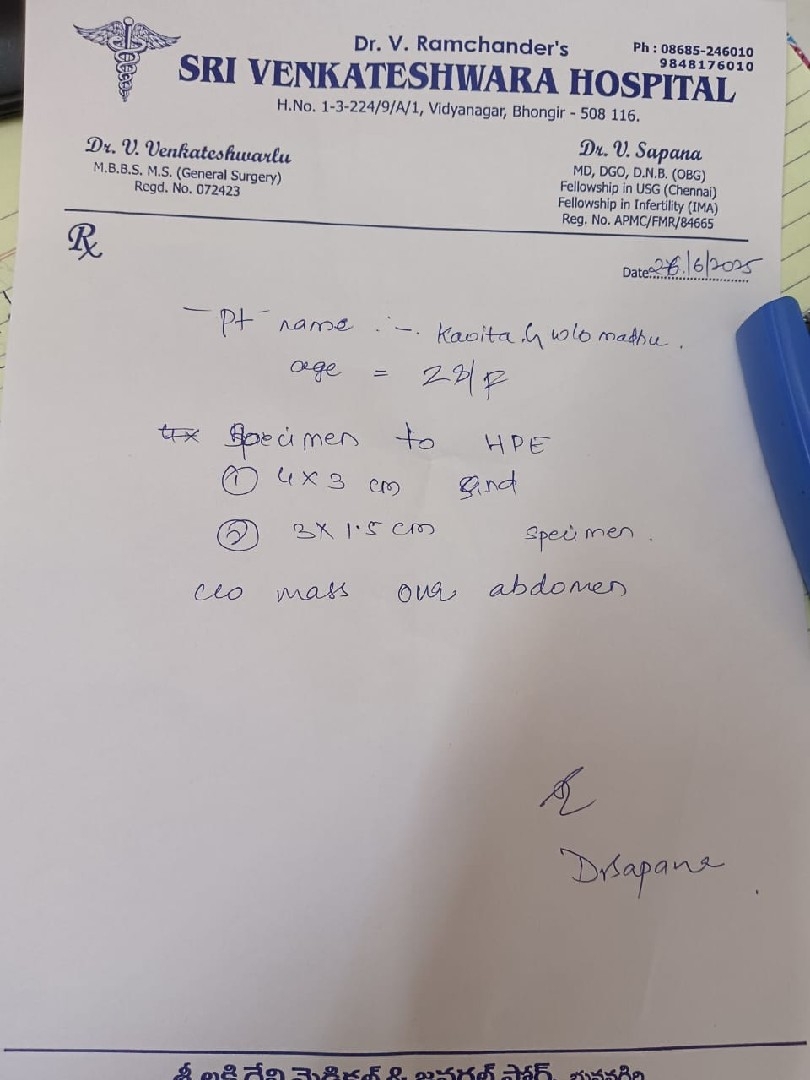 Dr. V. Ramchander's
Ph : 08685-246010
9848176010
SRI VENKATESHWARA HOSPITAL
H.No. 1-3-224/9/A/1, Vidyanagar, Bhongir - 508 116.
Dr. V. Venkateshwarlu
M.B.B.S. M.S. (General Surgery)
Regd. No. 072423
Dr. V. Sapana
MD, DGO, D.N.B. (OBG)
Fellowship in USG (Chennai)
Fellowship in Infertility (IMA)
Reg. No. APMC/FMR/84665
Rx
Date: 26/6/2025
Pt name :- Kavita. G w/o madhu.
age =
Specimen to HPE
① 4 x 3 cm and
② 3 x 1.5 cm specimen.
c/o mass over abdomen
Dr Sapana
శ్రీ లక్ష్మి దేవి మెడికల్ & జనరల్ స్టోర్, భువనగిరి